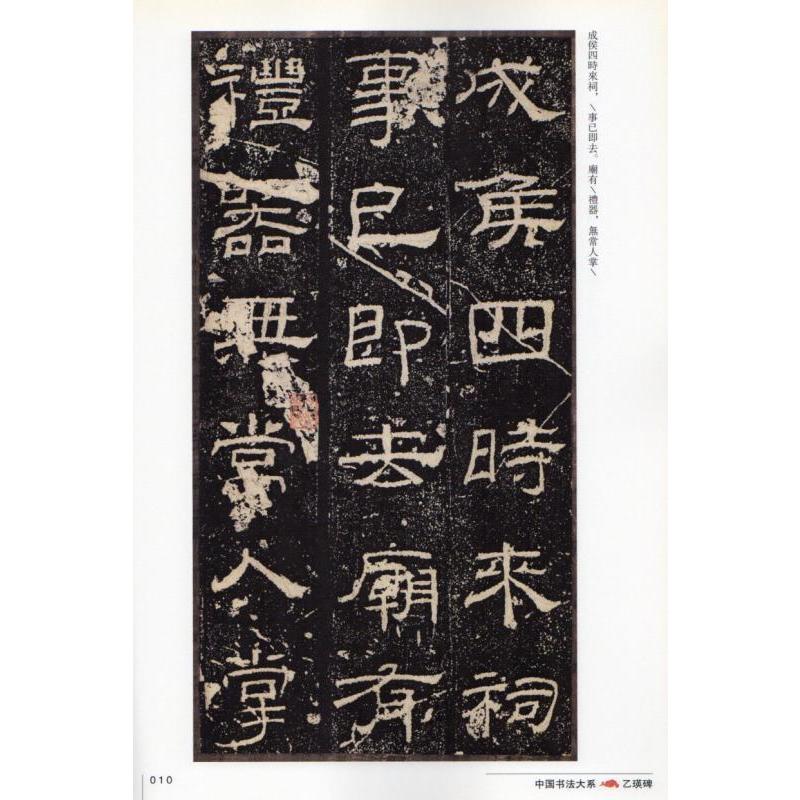 成侯四時來祠
事已即去廟有
禮器無常人掌
成侯四時來祠，\事已即去。廟有\禮器，無常人掌\
010
中国书法大系 乙瑛碑